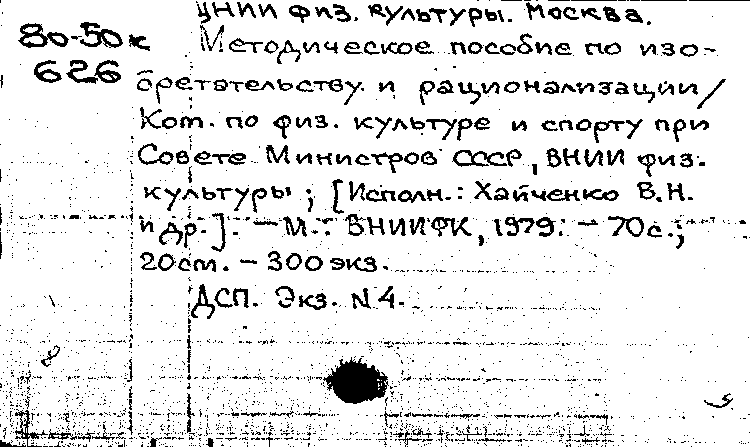 ЦНИИ физ. культуры. Москва.
80-50к Методическое пособие по изо-
626 бретательству и рационализации/
Ком. по физ. культуре и спорту при
Совете Министров СССР, ВНИИ физ.
культуры; [Исполн.: Хайченко В.Н.
и др.]. – М.: ВНИИФК, 1979. – 70с.;
20см. – 300 экз.
ДСП. Экз. N 4.